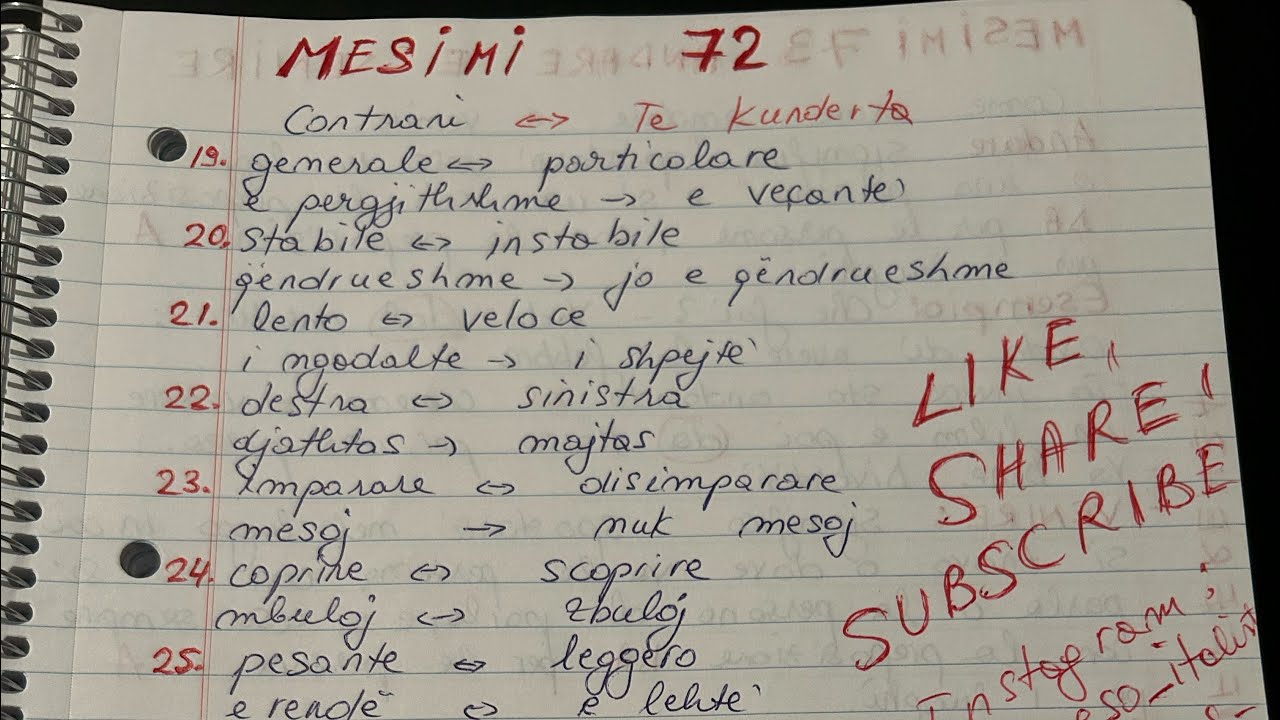 MESiMi 72
Contrari ↔ Te Kunderta
19. generale ↔ particolare
e pergjithshme → e veçantë
20. stabile ↔ instabile
qëndrueshme → jo e qëndrueshme
21. lento ↔ veloce
i ngadalte → i shpejtë
22. destra ↔ sinistra
djathtas → majtas
23. imparare ↔ disimparare
mesoj → nuk mesoj
24. coprire ↔ scoprire
mbuloj ↔ zbuloj
25. pesante ↔ leggero
e rendë ↔ e lehtë
LIKE,
SHARE,
SUBSCRIBE
Instagram: